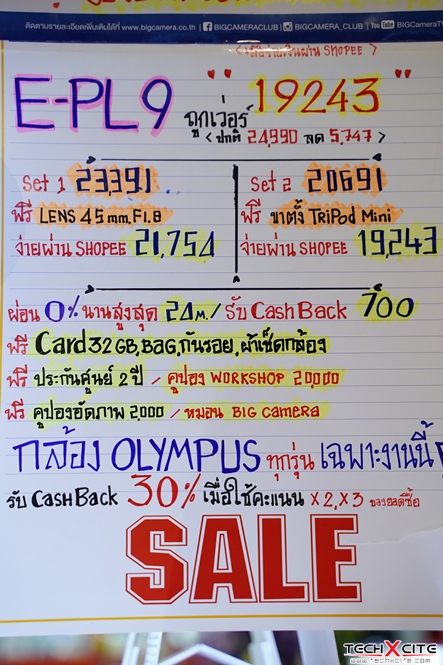 ติดตามรายละเอียดเพิ่มเติมได้ที่ www.bigcamera.co.th BIGCAMERACLUB BIGCAMERA_CLUB You Tube BIGCameraTV
SHOPEE >
E-PL9 ถูกเว่อร์ "19243"
< ปกติ 24,990 ลด 5,747 >
Set 1 23,391
ฟรี LENS 45 mm. F1.8
จ่ายผ่าน SHOPEE 21,754
Set 2 20691
ฟรี ขาตั้ง TRiPod Mini
จ่ายผ่าน SHOPEE 19,243
ผ่อน 0% นานสูงสุด 24 m. / รับ Cash Back 700
ฟรี Card 32 GB, BAG, กันรอย, ผ้าเช็ดกล้อง
ฟรี ประกันศูนย์ 2 ปี / คูปอง WORKSHOP 20,000
ฟรี คูปองอัดภาพ 2,000 / หมอน BIG Camera
กล้อง OLYMPUS ทุกรุ่น เฉพาะงานนี้
รับ Cash Back 30% เมื่อใช้คะแนน x2, x3 ของยอดซื้อ
SALE
TECHXCITE
www.techxcite.com